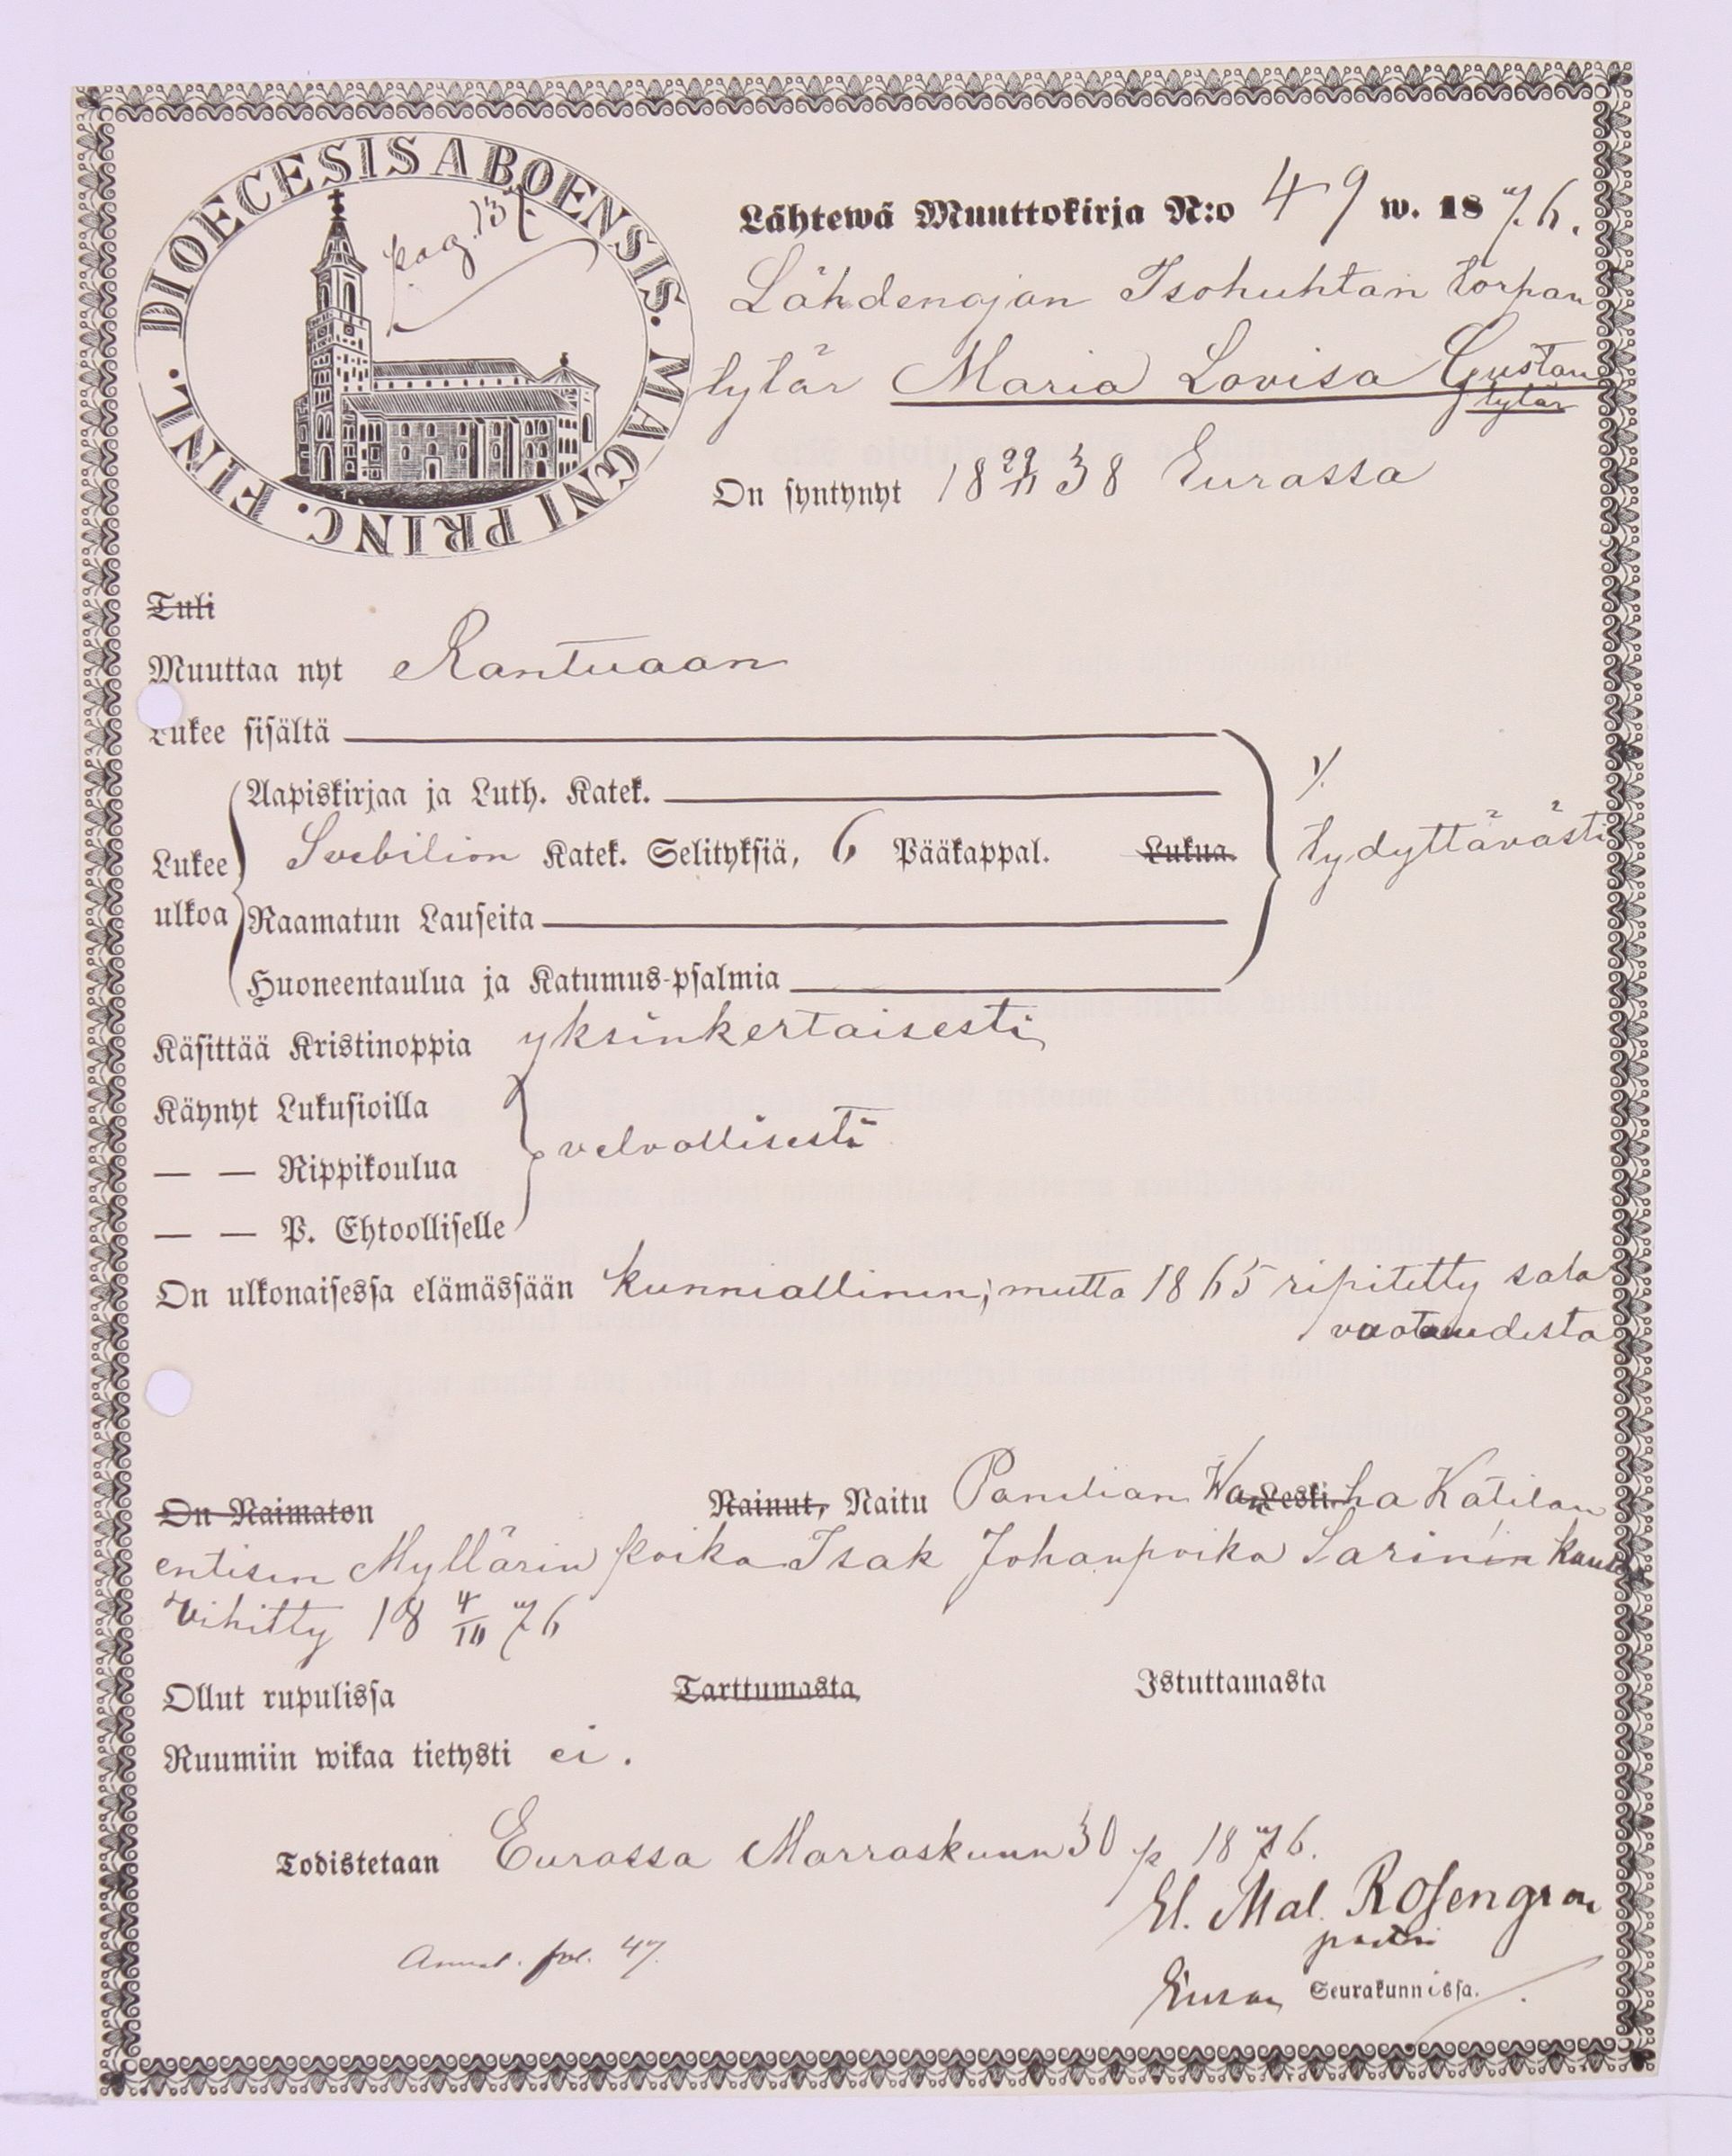 DIOECESIS ABOENSIS. MAGNI PRINC. FINL.
pag. 137.
Lähtewä Muuttokirja N:o 49 w. 1876.
Lähdenojan Isohuhtan torpan
tytär Maria Lovisa Gustan
tytär
On syntynyt 18 22/11 38 Eurassa
Tuli
Muuttaa nyt Kantuaan
Lukee sisältä
Aapiskirjaa ja Luth. Katek.
Lukee ulkoa Svebilion Katek. Selityksiä, 6 Pääkappal. Lukua.
tydyttävästi
Raamatun Lauseita
Huoneentaulua ja Katumus-psalmia
Käsittää Kristinoppia yksinkertaisesti
Käynyt Lukusioilla
— — Rippikoulua velvollisesti
— — P. Ehtoolliselle
On ulkonaisessa elämässään kunniallinen; mutta 1865 ripitetty sala
vuoteudesta
On Naimaton Nainut, Naitu Panelian Leski. Kätilän
entisen Myllärin poika Isak Johanpoika Sarinin kanssa
Vihitty 18 4/10 76
Ollut rupulissa Tarttumasta, Istuttamasta
Ruumiin wikaa tietysti ei.
Todistetaan Eurassa Marraskuun 30 p 1876.
El. Mal. Rosengren
Annot. fol. 47.
Euran Seurakunnissa.